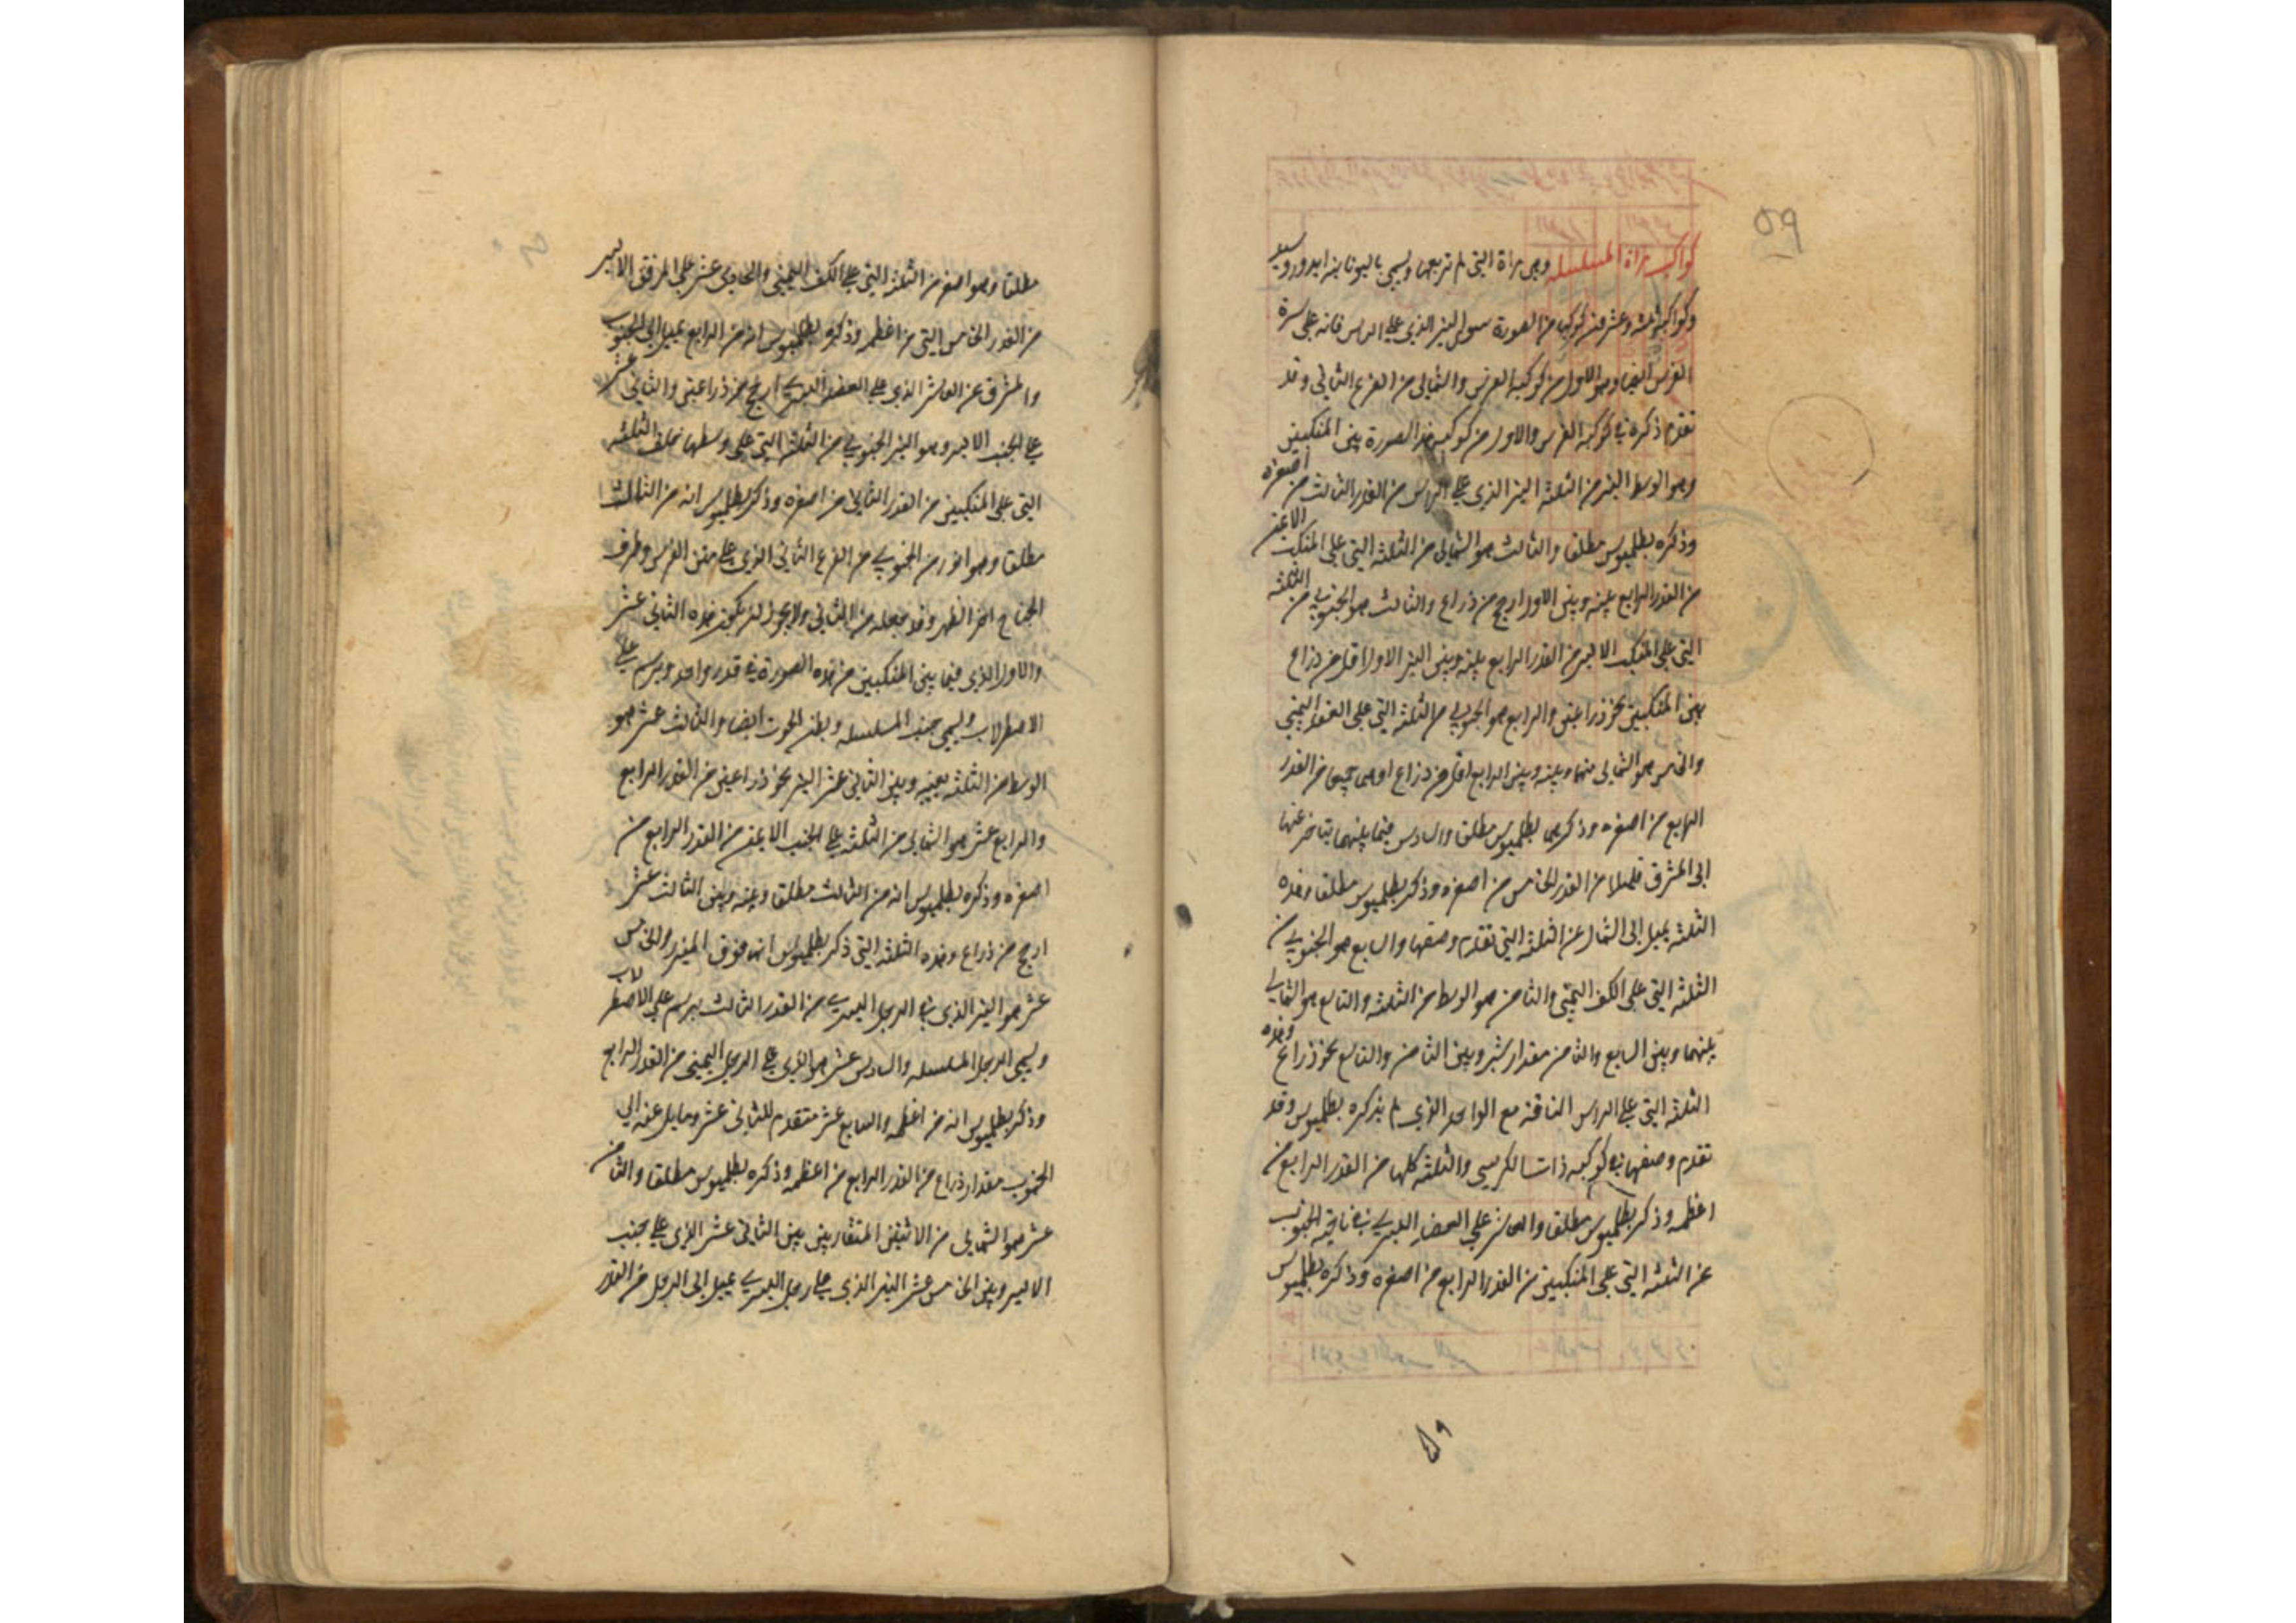 كواكب مراة المسلسله وهي مراة التي لم تر بعها ويسمى باليونانيه اندوروسيد
وكواكبه ثلثه وعشرون كوكبا من الصورة سوى النير الذي على الراس فانه على سرة
الفرس ايضا وهو الاول من كوكبه الفرس والشمالي من الفرع الثاني وقد
تقدم ذكره في كوكبه الفرس والاول من كوكبه هذه الصورة بين المنكبين
وهو الوسط النير من الثلثه النير الذي على الراس من القدر الثالث من اصغره
وذكره بطلميوس مطلقا والثالث هو الشمالي من الثلثه التي على المنكب الايمن
من القدر الرابع بينه وبين الاول ارجح من ذراع والثالث هو الجنوبي من الثلثه
التي على المنكب الايسر من القدر الرابع بينه وبين النير الاول اقل من ذراع
بين المنكبين نحو ذراعين والرابع هو الجنوبي من الثلثه التي على العضد اليمنى
والخامس هو الشمالي منها وبينه وبين الرابع اقل من ذراع وهي جميعا من القدر
الرابع من اصغره وذكرهما بطلميوس مطلقا والسادس فيما بينهما يتاخر عنها
الى المشرق قليلا من القدر الخامس من اصغره وذكر بطلميوس مطلقا وهذه
الثلثه يميل الى الشمال عن الثلثه التي تقدم وصفها والسابع هو الجنوبي من
الثلثه التي على الكف اليمنى والثامن هو الوسط من الثلثه والتاسع هو الشمالي
بينهما وبين السابع والثامن مقدار شبر وبين الثامن والتاسع نحو ذراع وهذه
الثلثه التي على الراس الناقه مع الواحد الذي لم يذكره بطلميوس وقد
تقدم وصفها في كوكبه ذات الكرسي والثلثه كلها من القدر الرابع من
اعظمه وذكر بطلميوس مطلقا والعاشر على العضد اليسرى في ناحيه الجنوب
عن الثلثه التي على المنكبين من القدر الرابع من اصغره وذكره بطلميوس
٥٩
مطلقا وهو اصغر من الثلثه التي على الكف اليمنى والحادي عشر على المرفق الايسر
من القدر الخامس التي من اعظمه وذكره بطلميوس انه من الرابع يميل الى الجنوب
والمشرق عن العاشر الذي على العضد اليسرى ارجح من ذراعين والثاني عشر
على الجنب الايسر وهو النير الجنوبي من الثلثه التي على وسطها خلف الثلثه
التي على المنكبين من القدر الثاني من اصغره وذكر بطلميوس انه من الثالث
مطلقا وهو انور من الجنوبي من الفرع الثاني الذي على متن الفرس وطرف
الجناح اخر الظهر وقد جعله من الثاني ولا يجوز ان يكون هذه الثاني عشر
والاول الذي فيما بين المنكبين من هذه الصورة في قدر واحد ويرسم على
الاصطرلاب ويسمى جنب المسلسله وبطن الحوت ايضا والثالث عشر هو
الوسط من الثلثه بينه وبين الثاني عشر النير نحو ذراعين من القدر الرابع
والرابع عشر هو الشمالي من الثلثه على الجنب الايمن من القدر الرابع من
اصغره وذكره بطلميوس انه من الثالث مطلقا وبينه وبين الثالث عشر
ارجح من ذراع وهذه الثلثه التي ذكر بطلميوس انها فوق الميزر والخامس
عشر هو النير الذي في الرجل اليسرى من القدر الثالث يرسم على الاصطرلاب
ويسمى الرجل المسلسله والسادس عشر هو الذي على الرجل اليمنى من القدر الرابع
وذكر بطلميوس انه من اعظمه والسابع عشر متقدم للثاني عشر ومايل عنه الى
الجنوب مقدار ذراع من القدر الرابع من اعظمه وذكره بطلميوس مطلقا والثامن
عشر هو الشمالي من الاثنين المتقاربين بين الثاني عشر الذي على جنب
الايسر وبين الخامس عشر النير الذي على رجل اليسرى يميل الى الرجل من القدر